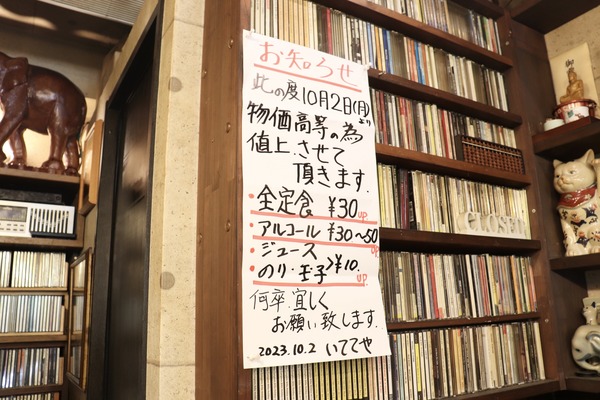 お知らせ
此の度10月2日(月)より
物価高等の為
値上させて
頂きます.
・全定食 ¥30up
・アルコール ¥30〜50up
・ジュース
・のり・玉子>¥10.up
何卒宜しく
お願い致します.
2023.10.2 いててや